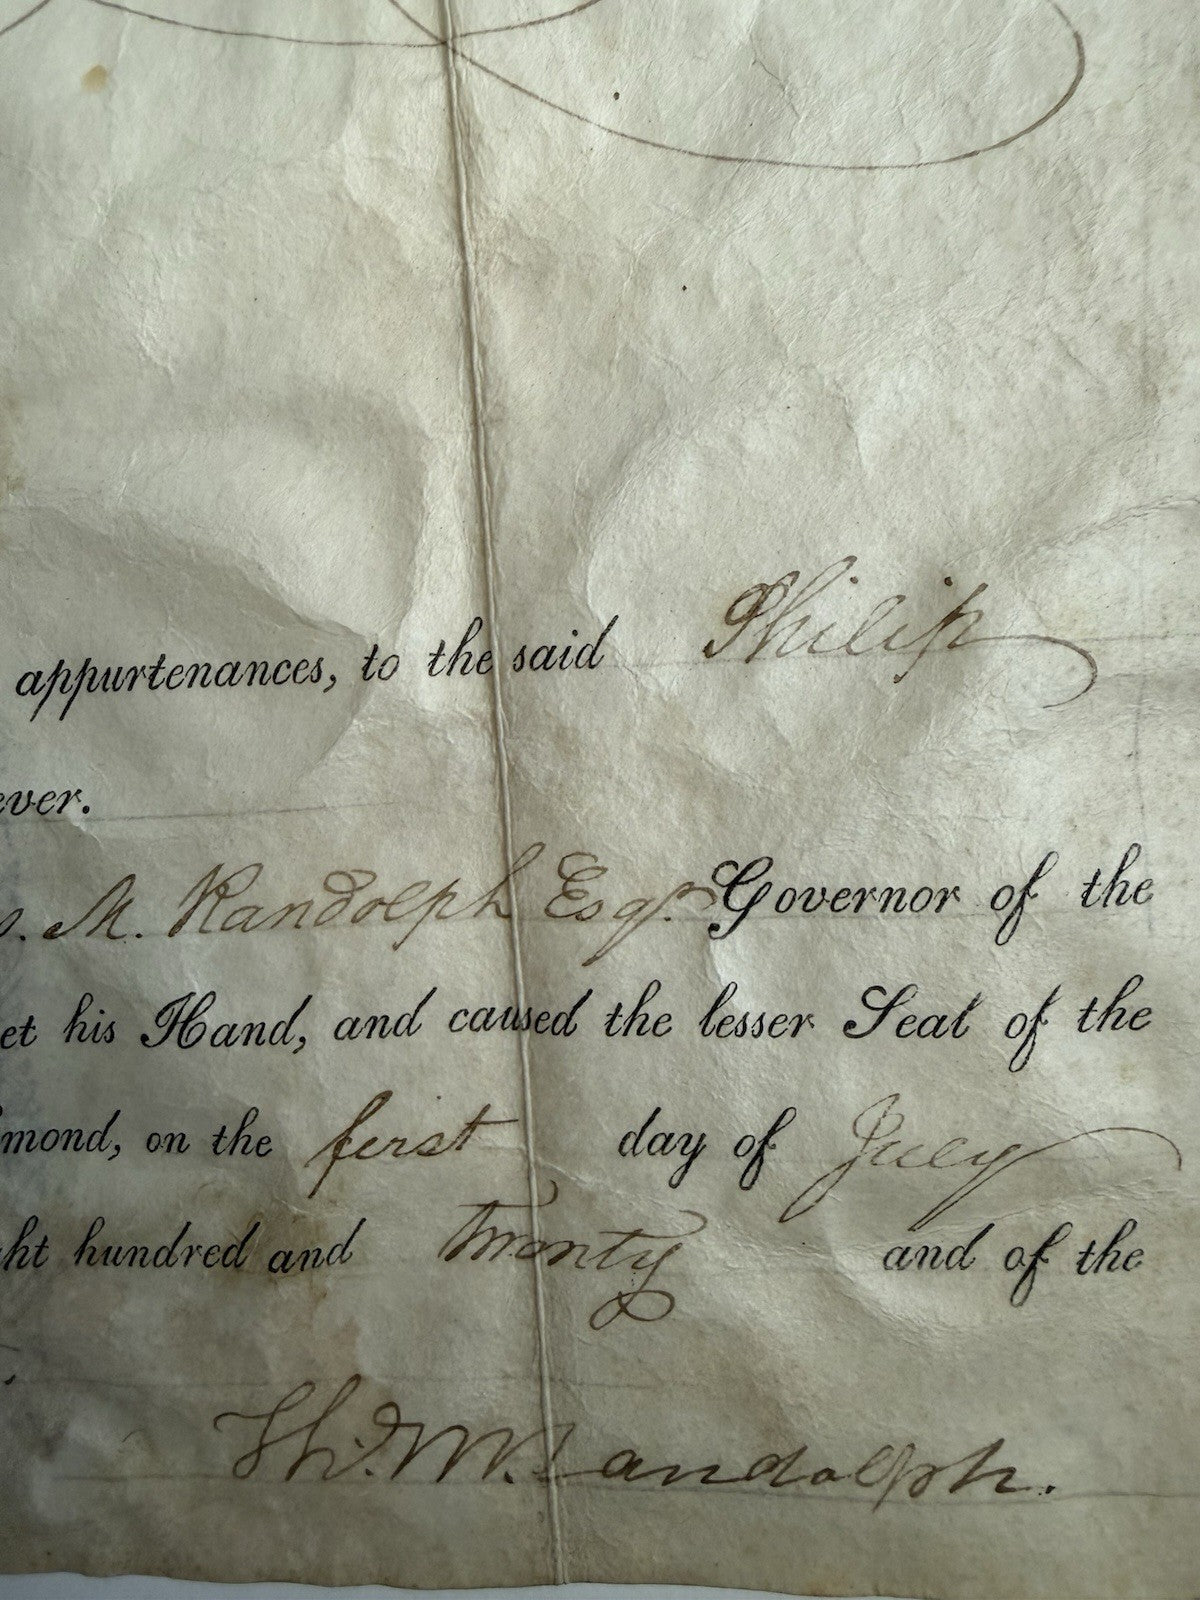 appurtenances, to the said Philip
ever.
M. Randolph Esqr. Governor of the
et his Hand, and caused the lesser Seal of the
mond, on the first day of July
ht hundred and twenty and of the
Th. M. Randolph.